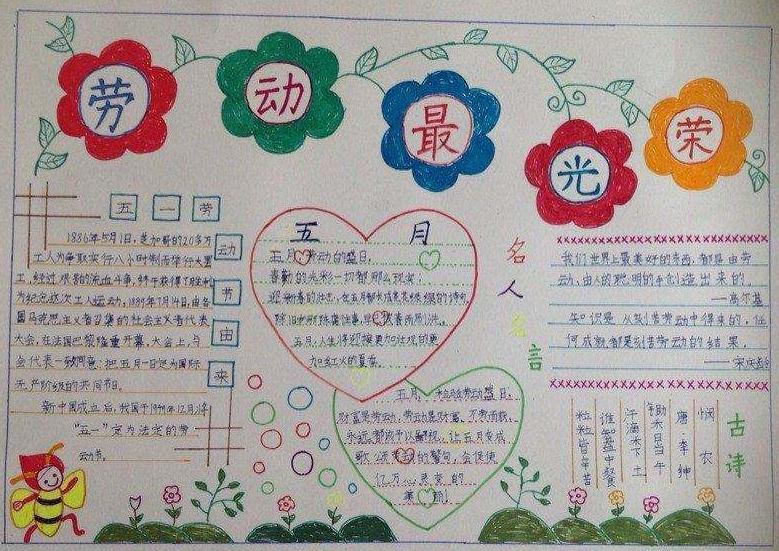 劳动最光荣
五一劳动节由来
1886年5月1日,芝加哥的20多万
工人为争取实行八小时制而举行大罢
工,经过艰苦的流血斗争,终于获得了胜利
为纪念这次工人运动,1889年7月14日,由各
国马克思主义者召集的社会主义者代表
大会,在法国巴黎隆重开幕,大会上,与
会代表一致同意:把五月一日定为国际
无产阶级的共同节日。
新中国成立后,我国于1949年12月将
“五一”定为法定的劳
动节。
五月
五月,劳动的盛日,
春勤的光彩一切都那么现实;
五月,人生将迎接更加壮观的更
加红火的夏季。
五月,一种劳动盛日,
财富是劳动,劳动是财富,
让五月变成
歌颂的警句,会促使
亿万心灵变的
美丽!
名人名言
我们世界上最美好的东西,都是由劳
动、由人的聪明的手创造出来的。
——高尔基
知识是从刻苦劳动中得来的,任
何成就都是刻苦劳动的结果。
——宋庆龄
古诗
悯农
唐 李绅
锄禾日当午
汗滴禾下土
谁知盘中餐
粒粒皆辛苦